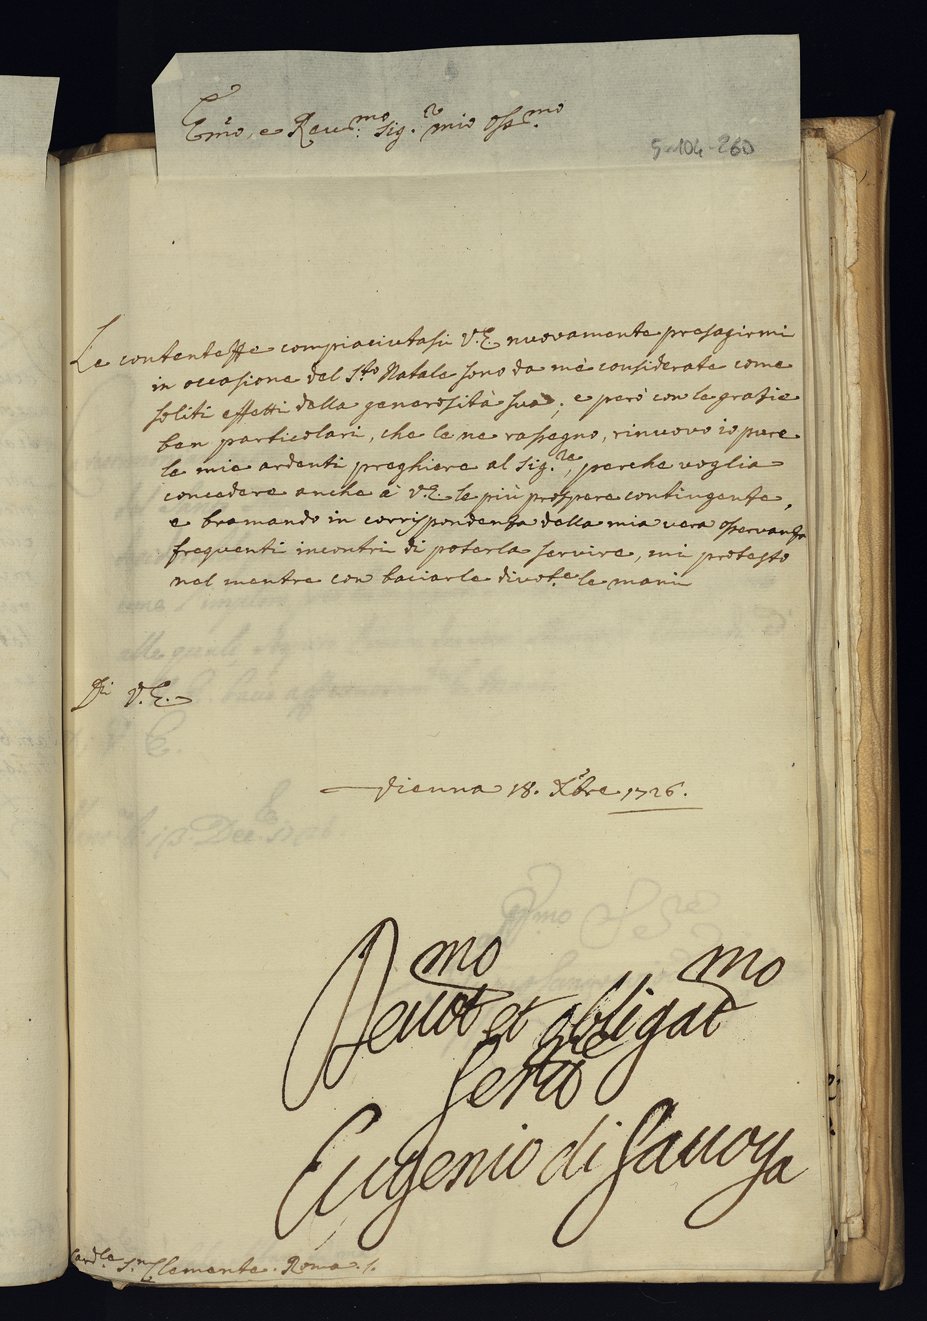 Em̃o, e Reu.mo Sig.re mio oss.mo
5-104-260
Le contentezze compiaciutasi V.E. nuovamente presagirmi
in occasione del S.to Natale sono da mè considerate come
soliti effetti della generosità sua; e però con le grazie
ben particolari, che le ne rassegno, rinuovo io pure
le mie ardenti preghiere al Sig.re, perche voglia
concedere anche à V.E. le più prospere contingenze,
e bramando in corrispondenza della mia vera osservanza
frequenti incontri di poterla servire, mi protesto
nel mentre con baciarle divot.e le mani
Di V.E.
Vienna 18. Xbre 1726.
Deuot.mo et obligat.mo
Serure
Eugenio di Sauoya
Card.le S.n Clemente. Roma.